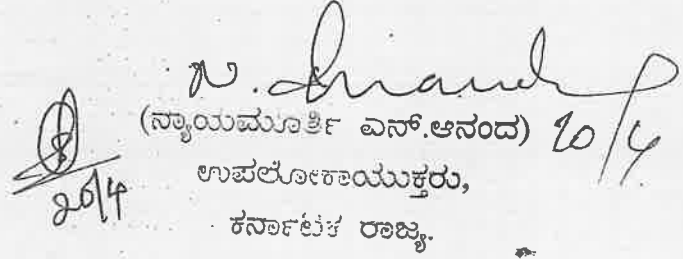 N. Anand
(ನ್ಯಾಯಮೂರ್ತಿ ಎನ್.ಆನಂದ) 20/4
20/4
ಉಪಲೋಕಾಯುಕ್ತರು,
ಕರ್ನಾಟಕ ರಾಜ್ಯ.